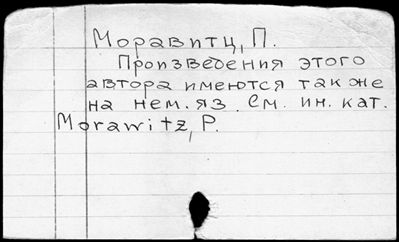 Моравитц, П.
Произведения этого
автора имеются также
на нем. яз. См. ин. кат.
Morawitz, P.